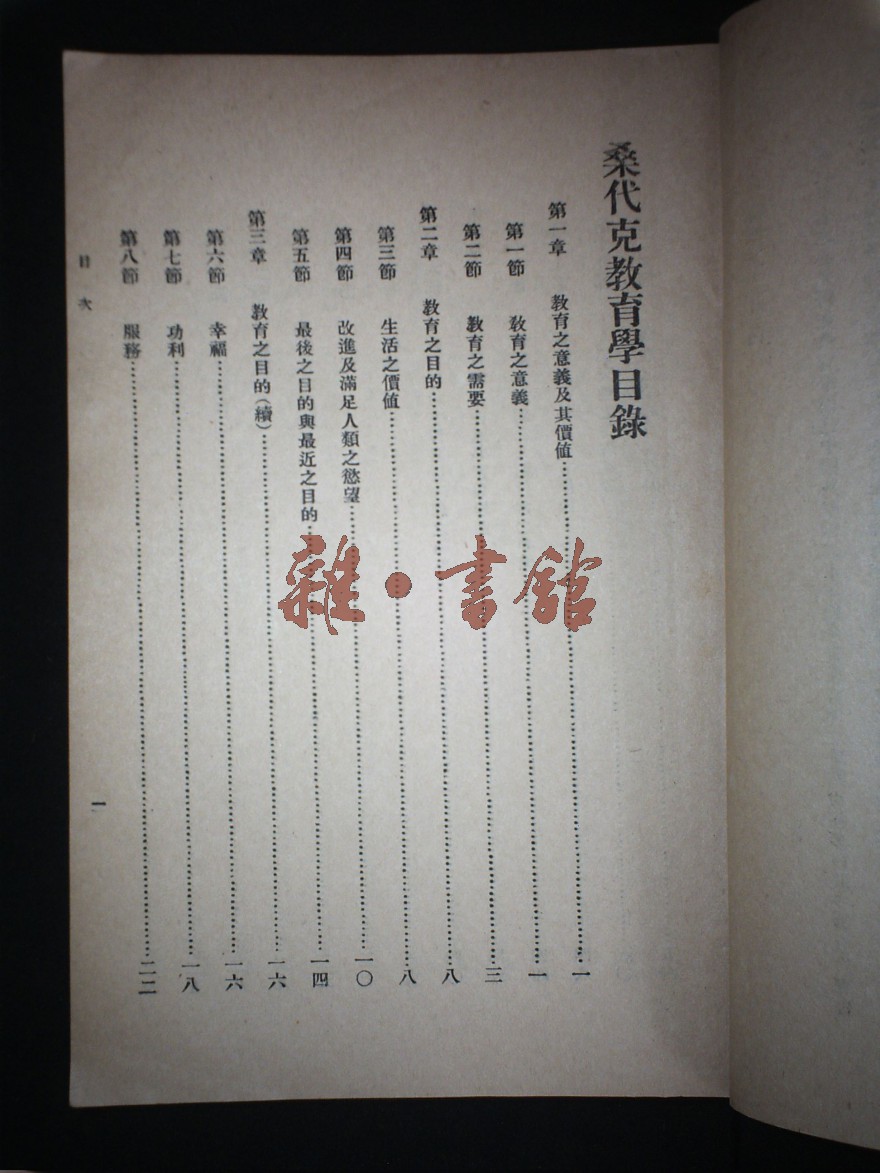 桑代克教育學目錄
第一章 教育之意義及其價値……一
第一節 教育之意義……一
第二節 教育之需要……三
第二章 教育之目的……八
第三節 生活之價値……八
第四節 改進及滿足人類之慾望……一〇
第五節 最後之目的與最近之目的……一四
第三章 教育之目的(續)……一六
第六節 幸福……一六
第七節 功利……一八
第八節 服務……二二
目次
一
雜·書館